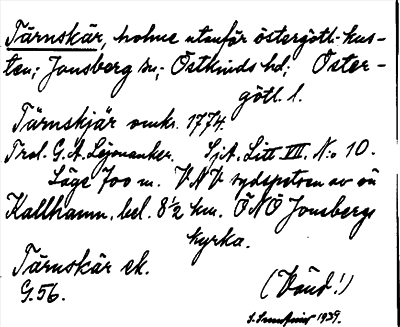 Tärnskär, holme utanför östergötl. kus-
ten; Jonsberg sn; Östkinds hd; Öster-
götl. l.
Tärnskjär omkr. 1774.
Trol. G. A. Lejonanker. SjA. Litt VII. No 10.
Läge 700 m. VNV sydspetsen av ön
Kallhamn, bel. 8½ km. ÖNO Jonsbergs
kyrka.
Tärnskär ek.
G. 56. (Vänd!)
1939.